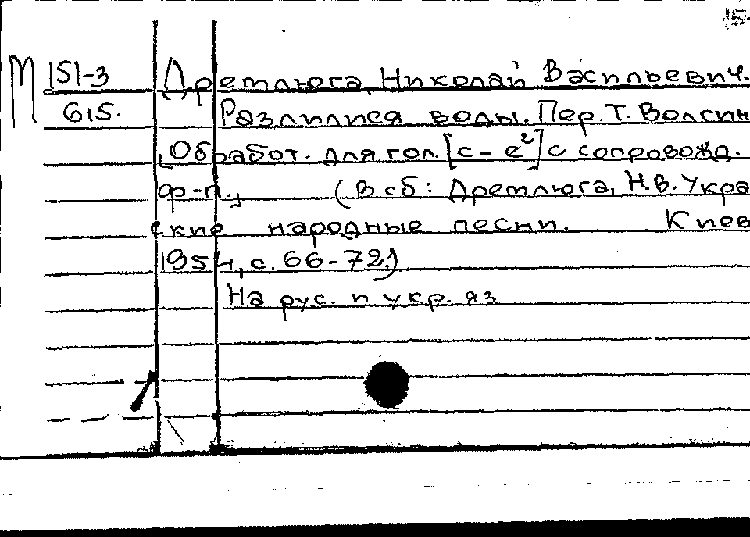 М 151-3 Дремлюга, Николай Васильевич.
615. Разлилися воды. Пер. Т. Волгин
[Обработ. для гол. [c - e²] с сопровожд.
ф-п.] (В сб: Дремлюга, Н.В. Укра
ские народные песни. Киев
1954, с. 66-72.)
На рус. и укр. яз